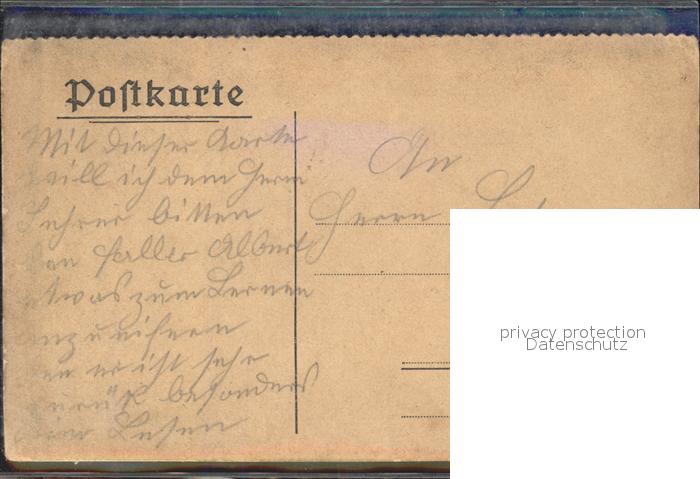 Postkarte
Mit dieser Karte
will ich dem Herrn
Lehrer bitten
den Faller Albert
etwas zum Lernen
anzueifern
er ist sehr
zurück besonders
beim Lesen
An
Herrn
privacy protection
Datenschutz